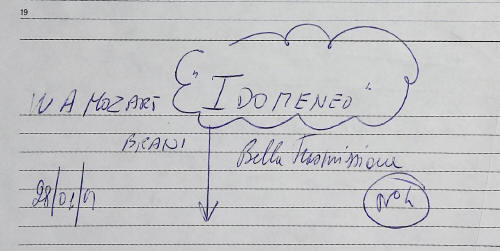 19
W A MOZART "IDOMENEO"
BRANI
Bella Trasmissione
N° 4